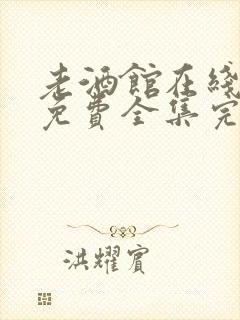 老酒館在綫
免費全集完
洪耀賓